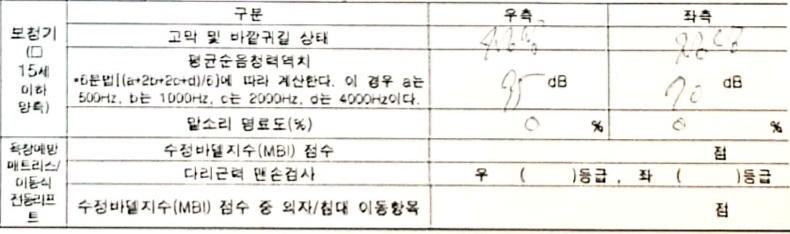 구분 우측 좌측
보청기
(□
15세
이하
양측)
고막 및 바깥귀길 상태
평균순음청력역치
*6분법[(a+2b+2c+d)/6]에 따라 계산한다. 이 경우 a는
500Hz, b는 1000Hz, c는 2000Hz, d는 4000Hz이다.
95 dB 90 dB
말소리 명료도(%) 0 % 0 %
욕창예방
매트리스/
이동식
전동리프
트
수정바델지수(MBI) 점수 점
다리근력 맨손검사 우 ( )등급 , 좌 ( )등급
수정바델지수(MBI) 점수 중 의자/침대 이동항목 점